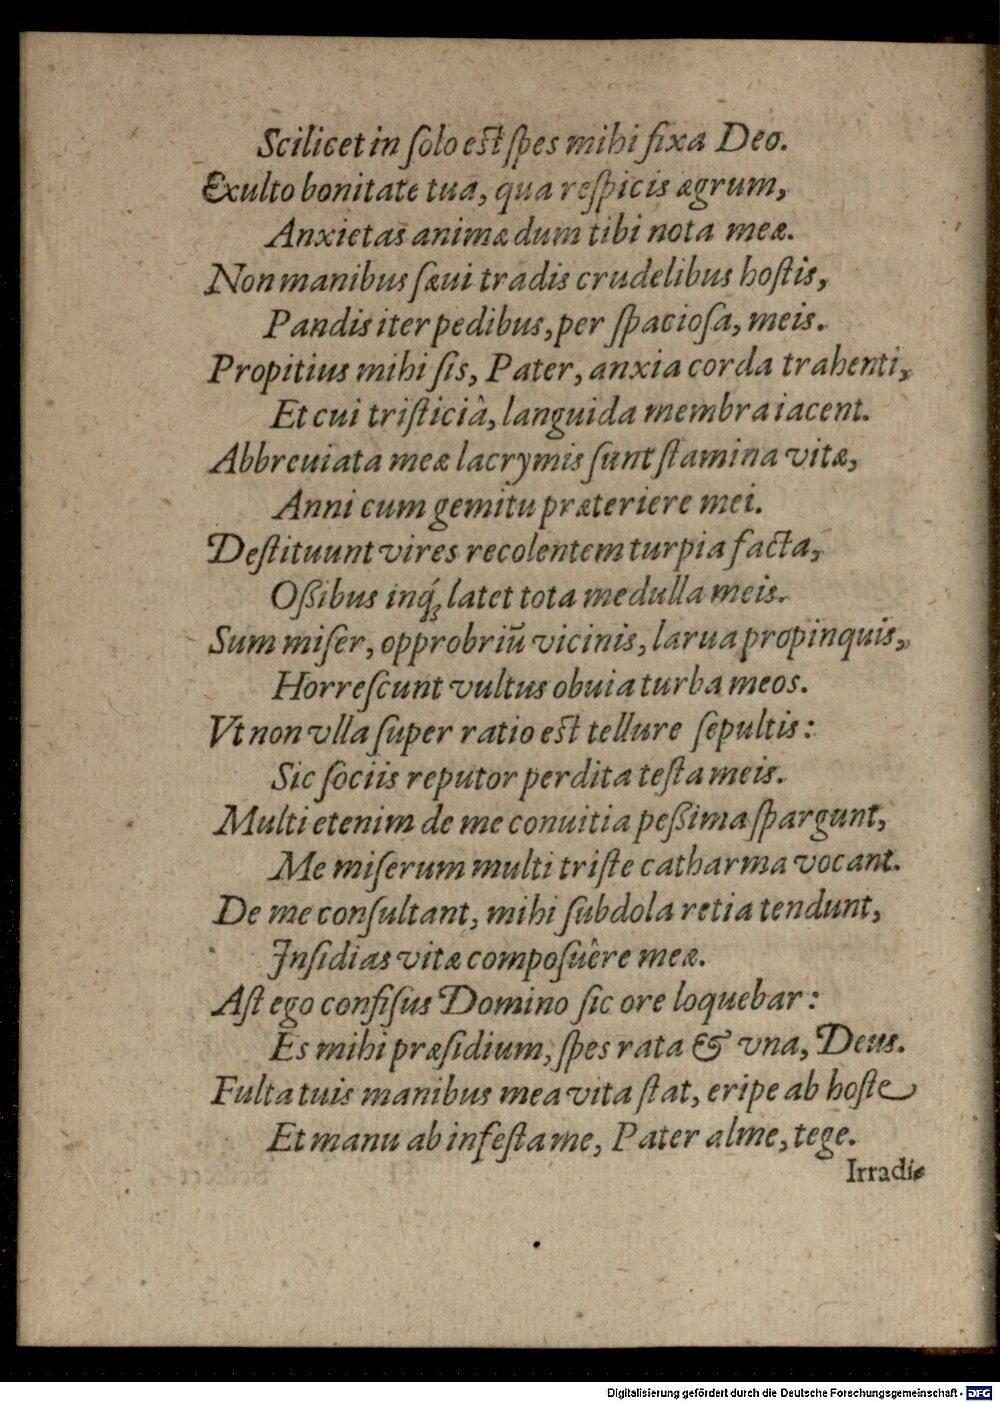 Scilicet in ſolo eſt ſpes mihi fixa Deo.
Exulto bonitate tua, qua reſpicis ægrum,
Anxietas animæ dum tibi nota meæ.
Non manibus ſæui tradis crudelibus hoſtis,
Pandis iter pedibus, per ſpacioſa, meis.
Propitius mihi ſis, Pater, anxia corda trahenti,
Et cui triſticiâ, languida membra iacent.
Abbreuiata meæ lacrymis ſunt ſtamina vitæ,
Anni cum gemitu præteriere mei.
Deſtituunt vires recolentem turpia facta,
Oßibus inq́ꝫ latet tota medulla meis.
Sum miſer, opprobriū vicinis, larua propinquis,
Horreſcunt vultus obuia turba meos.
Vt non vlla ſuper ratio eſt tellure ſepultis:
Sic ſociis reputor perdita teſta meis.
Multi etenim de me conuitia peßima ſpargunt,
Me miſerum multi triſte catharma vocant.
De me conſultant, mihi ſubdola retia tendunt,
Inſidias vitæ compoſuêre meæ.
Aſt ego confiſus Domino ſic ore loquebar:
Es mihi præſidium, ſpes rata & vna, Deus.
Fulta tuis manibus mea vita ſtat, eripe ab hoſte
Et manu ab infeſta me, Pater alme, tege.
Irradi⸗
Digitalisierung gefördert durch die Deutsche Forschungsgemeinschaft - DFG